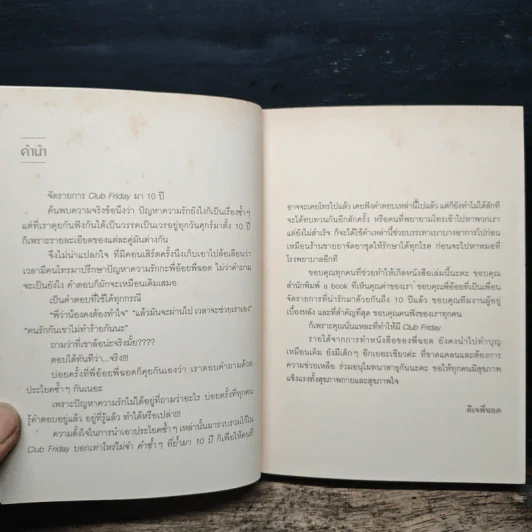 คำนำ
จัดรายการ Club Friday มา 10 ปี
ค้นพบความจริงข้อนึงว่า ปัญหาความรักยังไงก็เป็นเรื่องซ้ำๆ
แต่ที่เราคุยกันฟังกันได้เป็นวรรคเป็นเวรอยู่ทุกวันศุกร์มาตั้ง 10 ปี
ก็เพราะรายละเอียดของแต่ละคู่มันต่างกัน
จึงไม่น่าแปลกใจ ที่มีคอนเสิร์ตครั้งนึงเก็บเอาไปล้อเลียนว่า
เวลามีคนโทรมาปรึกษาปัญหาความรักกะพี่อ้อยพี่ฉอด ไม่ว่าคำถาม
จะเป็นยังไง คำตอบก็มักจะเหมือนเดิมเสมอ
เป็นคำตอบที่ใช้ได้ทุกกรณี
"พี่ว่าน้องคงต้องทำใจ" "แล้วมันจะผ่านไป เวลาจะช่วยเราเอง"
"คนรักกันเขาไม่ทำร้ายกันนะ"
ถามว่าที่เขาล้อน่ะจริงมั้ย????
ตอบได้ทันทีว่า...จริง!!!!
บ่อยครั้งที่พี่อ้อยพี่ฉอดก็คุยกันเองว่า เราตอบคำถามด้วย
ประโยคซ้ำๆ กันเนอะ
เพราะปัญหาความรักไม่ได้อยู่ที่ถามว่าอะไร บ่อยครั้งที่ทุกคน
รู้คำตอบอยู่แล้ว อยู่ที่รู้แล้ว ทำได้หรือเปล่า!!!
ความตั้งใจในการนำเอาประโยคซ้ำๆ เหล่านั้นมารวบรวมไว้ใน
Club Friday บอกเท่าไหร่ไม่จำ คำซ้ำๆ ที่ย้ำมา 10 ปี ก็เพื่อให้คนที่
อาจจะเคยโทรไปแล้ว เคยฟังคำตอบเหล่านี้ไปแล้ว แต่ก็ยังทำไม่ได้สักที
จะได้ทบทวนกันอีกสักครั้ง หรือคนที่พยายามโทรเข้าไปหาพวกเรา
แต่ยังไม่สำเร็จ ก็จะได้ใช้คำเหล่านี้ช่วยบรรเทาเบาบางอาการไปก่อน
เหมือนร้านขายยาจัดยาชุดให้รักษาได้ทุกโรค ก่อนจะไปหาหมอที่
โรงพยาบาลอีกที
ขอบคุณทุกคนที่ช่วยทำให้เกิดหนังสือเล่มนี้นะคะ ขอบคุณ
สำนักพิมพ์ a book ที่เห็นคุณค่าของเรา ขอบคุณพี่อ้อยที่เป็นเพื่อน
จัดรายการที่น่ารักมาด้วยกันถึง 10 ปีแล้ว ขอบคุณทีมงานผู้อยู่
เบื้องหลัง และที่สำคัญที่สุด ขอบคุณคนฟังของเราทุกคน
ก็เพราะคุณนั่นแหละที่ทำให้มี Club Friday
รายได้จากการทำหนังสือของพี่ฉอด ยังคงนำไปทำบุญ
เหมือนเดิม ยังมีเด็กๆ อีกเยอะเชียวค่ะ ที่ขาดแคลนและต้องการ
ความช่วยเหลือ ร่วมอนุโมทนาสาธุกันนะคะ ขอให้ทุกคนมีสุขภาพ
แข็งแรงทั้งสุขภาพกายและสุขภาพใจ
ดีเจพี่ฉอด